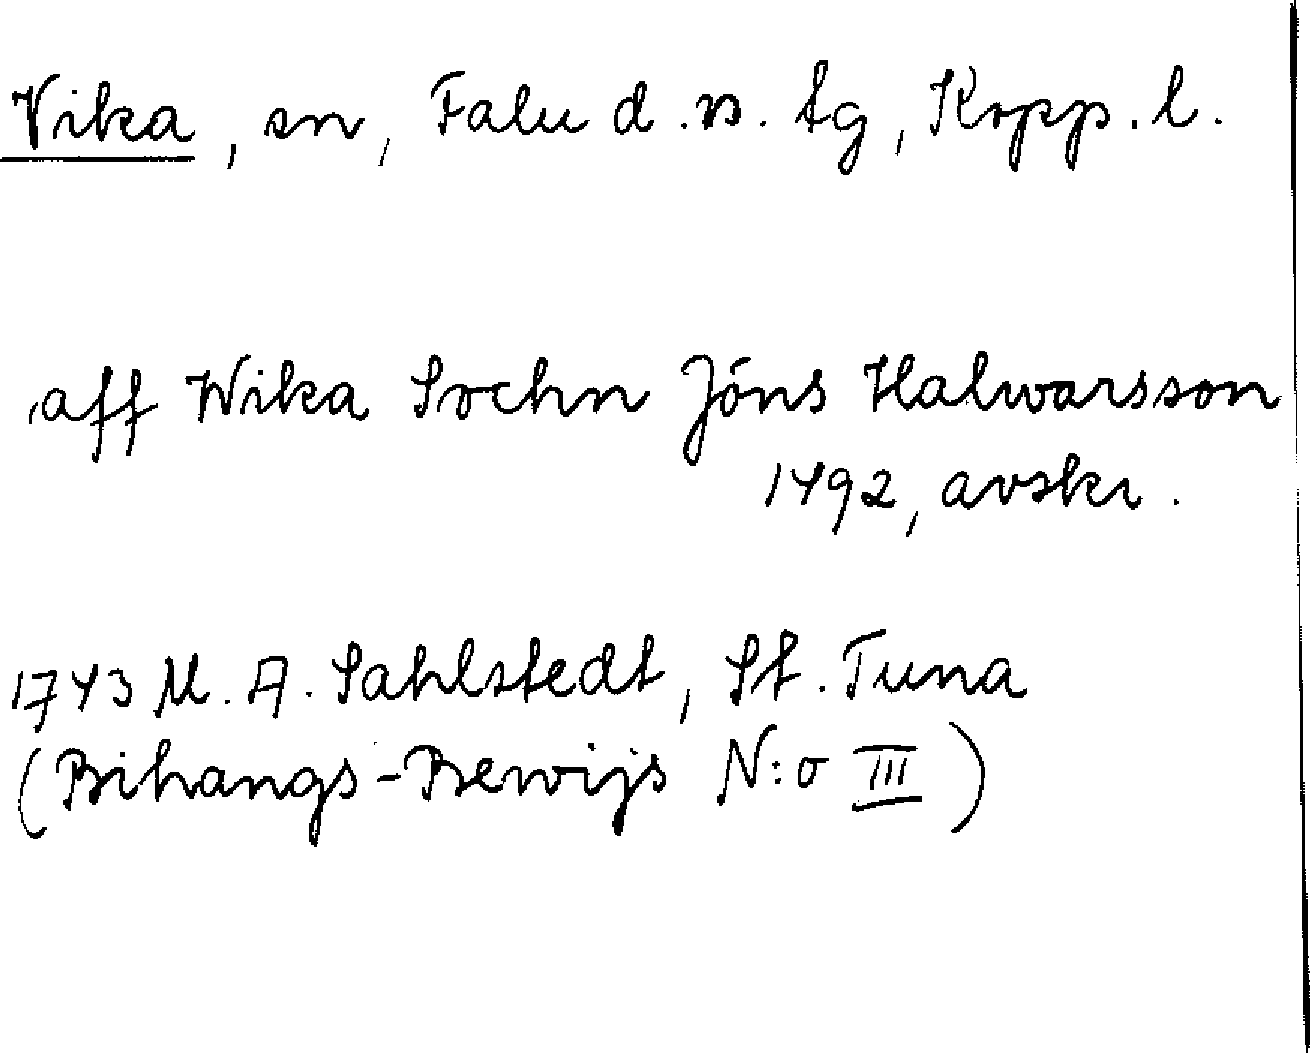 Vika, sn, Falu d.s. tg, Kopp.l.
aff Wika Sochn Jóns Halwarsson
1492, avskr.
1743 M. A. Sahlstedt, St. Tuna
(Bihangs-Bewijs N:o III)